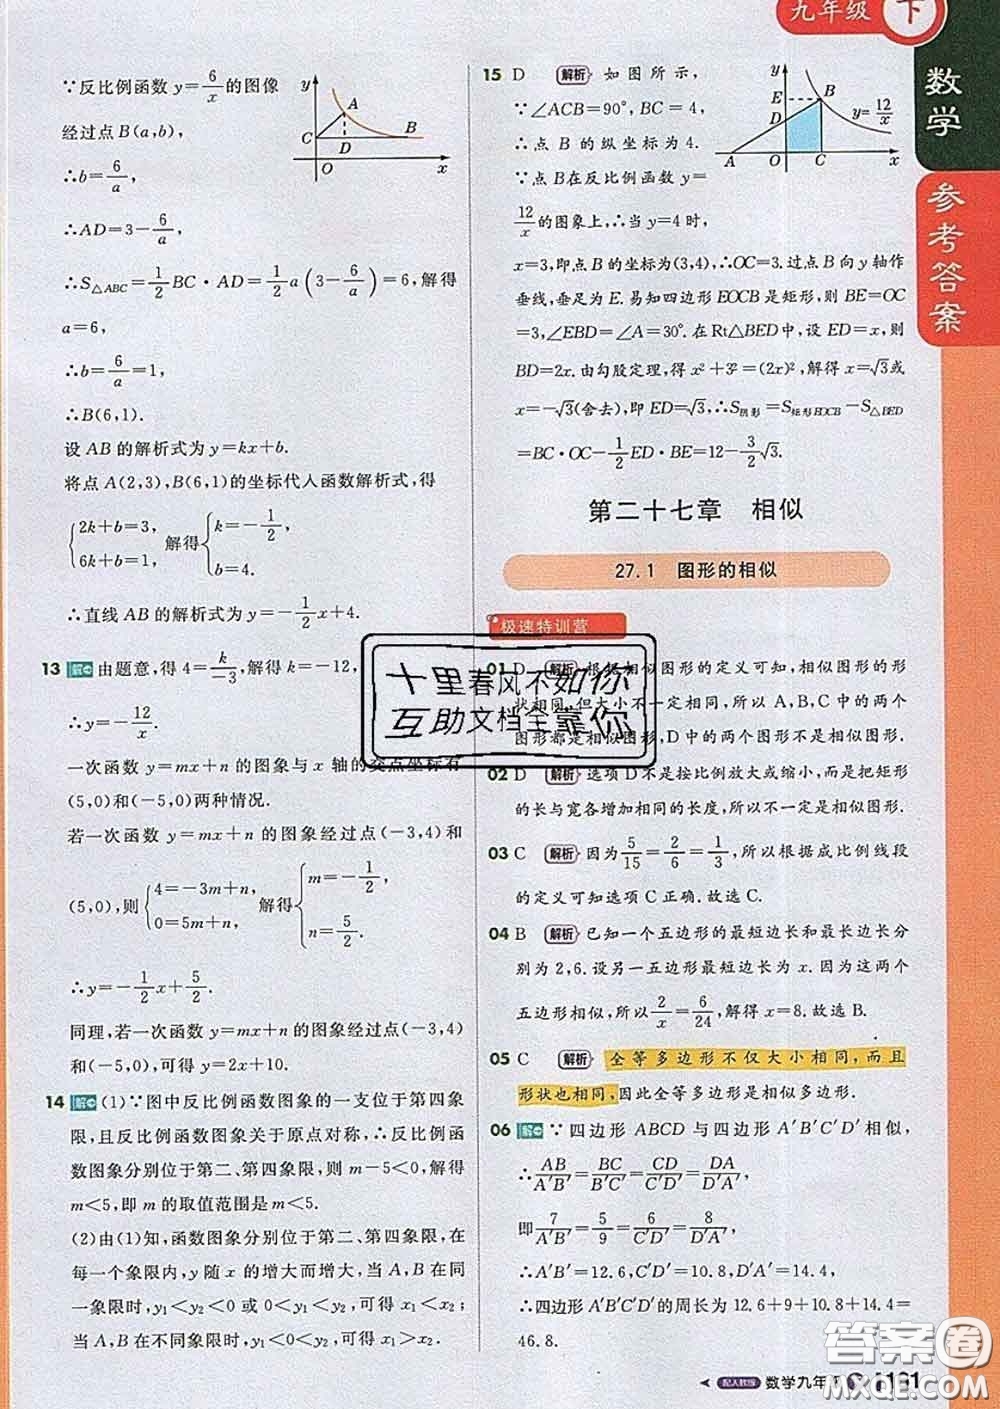 九年级 下
数学
参考答案
∵反比例函数 y=6/x 的图像
经过点 B(a,b),
∴b=6/a,
∴AD=3-6/a,
∴S△ABC=1/2 BC·AD=1/2 a(3-6/a)=6,解得
a=6,
∴b=6/a=1,
∴B(6,1).
设 AB 的解析式为 y=kx+b.
将点 A(2,3),B(6,1)的坐标代人函数解析式,得
{2k+b=3, 6k+b=1, 解得{k=-1/2, b=4.
∴直线 AB 的解析式为 y=-1/2 x+4.
13 解 由题意,得 4=k/-3,解得 k=-12,
∴y=-12/x.
一次函数 y=mx+n 的图象与 x 轴的交点坐标有
(5,0)和(-5,0)两种情况.
若一次函数 y=mx+n 的图象经过点(-3,4)和
(5,0),则{4=-3m+n, 0=5m+n, 解得{m=-1/2, n=5/2.
∴y=-1/2 x+5/2.
同理,若一次函数 y=mx+n 的图象经过点(-3,4)
和(-5,0),可得 y=2x+10.
14 解 (1)∵图中反比例函数图象的一支位于第四象
限,且反比例函数图象关于原点对称,∴反比例函
数图象分别位于第二、第四象限,则 m-5<0,解得
m<5,即 m 的取值范围是 m<5.
(2)由(1)知,函数图象分别位于第二、第四象限,在
每一个象限内,y 随 x 的增大而增大,当 A,B 在同
一象限时,y₁<y₂<0 或 0<y₁<y₂,可得 x₁<x₂;
当 A,B 在不同象限时,y₁<0<y₂,可得 x₁>x₂.
y
A
C
B
D
O
x
15 D 解析 如图所示,
∵∠ACB=90°,BC=4,
∴点 B 的纵坐标为 4.
∵点 B 在反比例函数 y=
12/x 的图象上,∴当 y=4 时,
x=3,即点 B 的坐标为(3,4),∴OC=3.过点 B 向 y 轴作
垂线,垂足为 E.易知四边形 EOCB 是矩形,则 BE=OC
=3,∠EBD=∠A=30°.在 Rt△BED 中,设 ED=x,则
BD=2x.由勾股定理,得 x²+3²=(2x)²,解得 x=√3或
x=-√3(舍去),即 ED=√3,∴S阴影=S矩形EOCB-S△BED
=BC·OC-1/2 ED·BE=12-3/2√3.
y
E
B
y=12/x
D
A
O
C
x
第二十七章 相似
27.1 图形的相似
极速特训营
01 D 解析 根据相似图形的定义可知,相似图形的形
状相同,但大小不一定相同,所以 A,B,C 中的两个
图形都是相似图形,D 中的两个图形不是相似图形.
02 D 解析 选项 D 不是按比例放大或缩小,而是把矩形
的长与宽各增加相同的长度,所以不一定是相似图形.
03 C 解析 因为5/15=2/6=1/3,所以根据成比例线段
的定义可知选项 C 正确.故选 C.
04 B 解析 已知一个五边形的最短边长和最长边长分
别为 2,6.设另一五边形最短边长为 x.因为这两个
五边形相似,所以2/x=6/24,解得 x=8.故选 B.
05 C 解析 全等多边形不仅大小相同,而且
形状也相同,因此全等多边形是相似多边形.
06 解 ∵四边形 ABCD 与四边形 A′B′C′D′相似,
∴AB/A′B′=BC/B′C′=CD/C′D′=DA/D′A′,
即7/A′B′=5/9=6/C′D′=8/D′A′,
∴A′B′=12.6,C′D′=10.8,D′A′=14.4,
∴四边形 A′B′C′D′的周长为 12.6+9+10.8+14.4=
46.8.
十里春风不如你
互助文档全靠你
配人教版 数学九年 161
答案卷